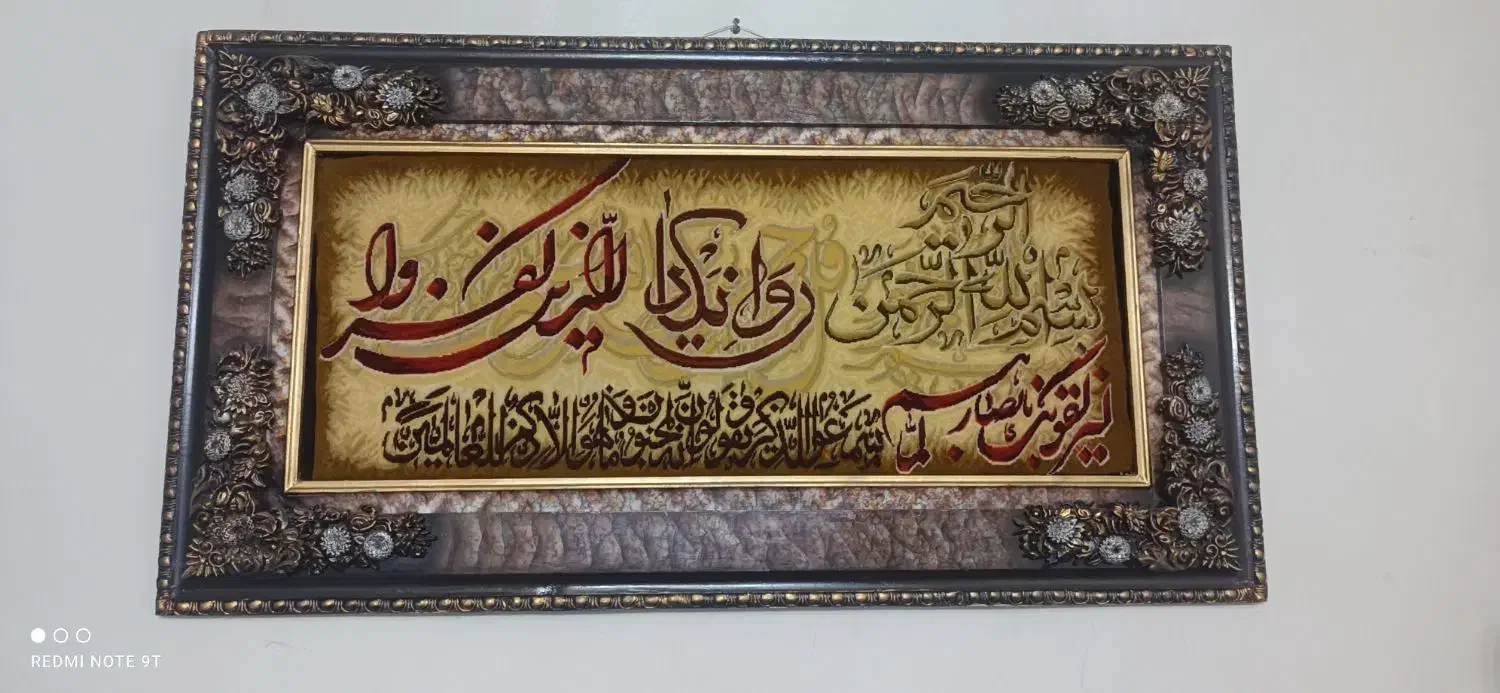 بسم الله الرحمن الرحيم
وان يكاد الذين كفروا
ليزلقونك بابصارهم لما
سمعوا الذكر ويقولون انه لمجنون وما هو الا ذكر للعالمين
REDMI NOTE 9T